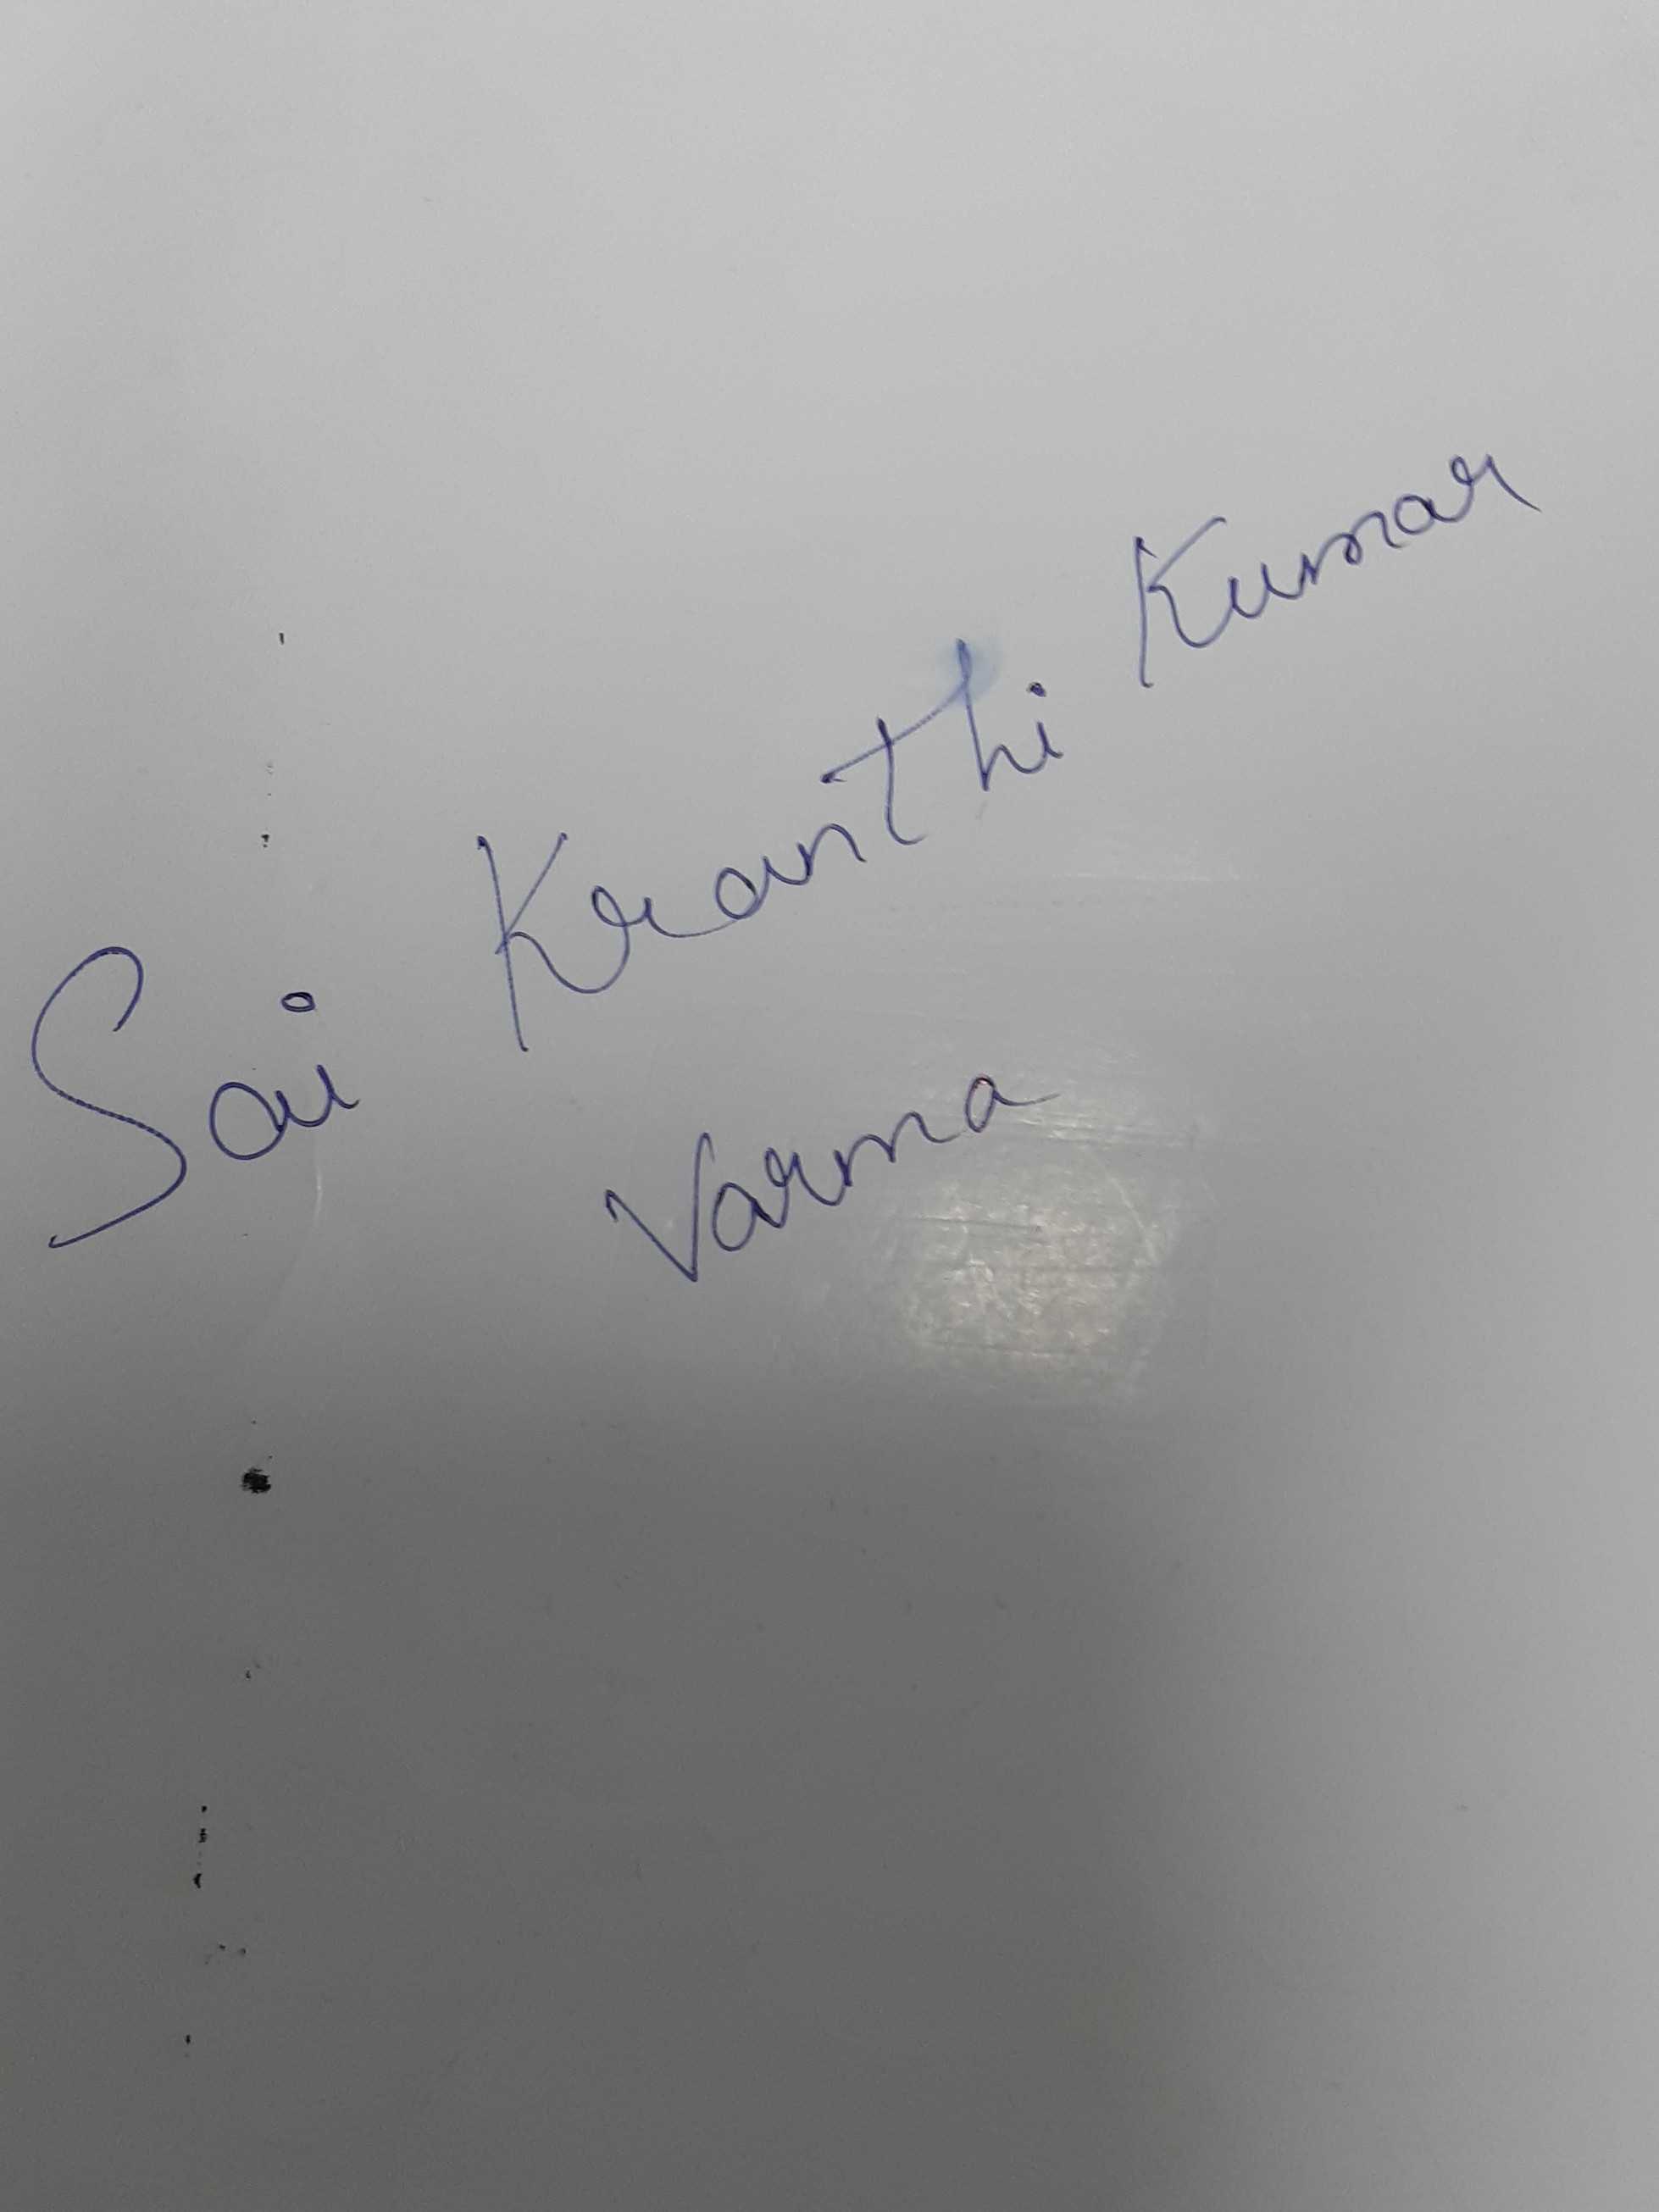 Sai Kranthi Kumar
Varma